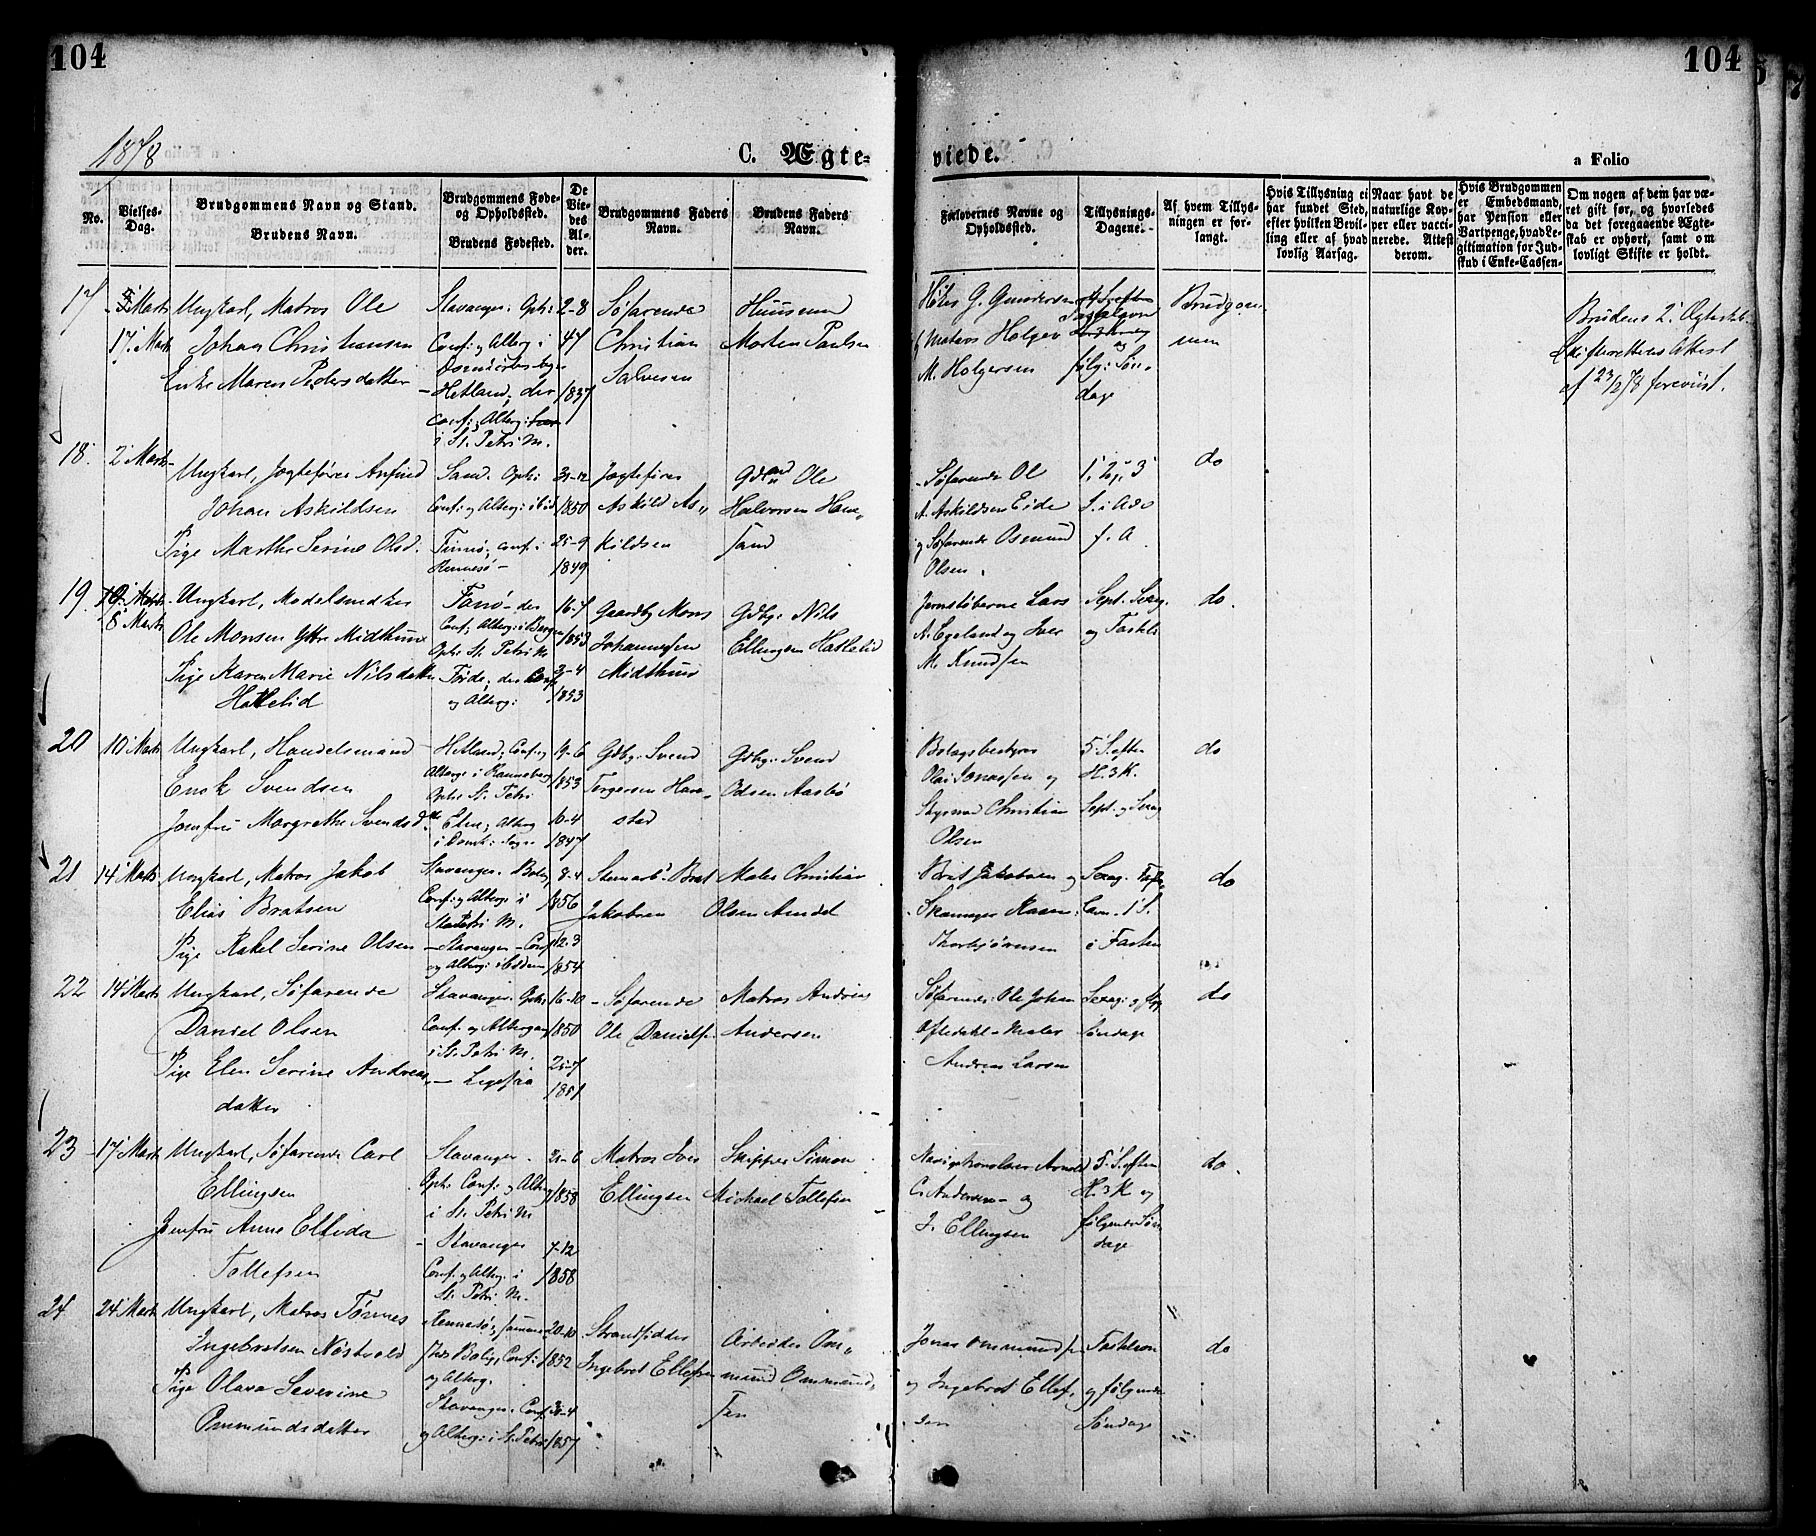 104
104
1878
C. Ægte-
viede.
a Folio
No.
Vielses-Dag.
Brudgommens Navn og Stand.
Brudens Navn.
Brudgommens Føde- og Opholdssted.
Brudens Fødested.
De Viedes Alder.
Brudgommens Faders Navn.
Brudens Faders Navn.
Forlovernes Navne og Opholdssted.
Tillysnings-Dagene.
Af hvem Tillysningen er forlangt.
Hvis Tillysning ei har fundet Sted, efter hvilken Bevilling eller af hvad lovlig Aarsag.
Naar havt de naturlige Kopper eller vaccinerede. Attest derom.
Hvis Brudgommen er Embedsmand, har Pension eller Vartpenge, hvad Legitimation for Indskud i Enke-Cassen.
Om nogen af dem har været gift før, og hvorledes da det foregaaende Ægteskab er ophørt, samt om lovligt Skifte er holdt.
17
17 Marts
Ungkarl, Matros Ole
Johan Christiansen
Enke Maren Pedersdatter
Stavanger. Oph:
Conf: og Altberg i
Hetland; der
Conf; Altberg:
i St. Petri M.
2-8
47
1837
Søfarende
Christian
Salvesen
Huusmand
Morten Paulsen
G. Gundersen
og Matros Holger
M. Holgersen
og
følg: Søn-
dage
Brudgom-
men
Brudens 2. Ægteskab
Skifterettens Attest
af 23/2 78 forevist.
18.
2 Marts
Ungkarl, Jægtefører Anfind
Johan Askildsen
Pige Marthe Serine Olsd.
Sand. Oph:
Conf: og Altberg: i Eid
Conf: i
Rennesø
31-12
1850
25-9
1849
Jægtefører
Askild As-
kildsen
Gdmd Ole
Halvorsen Hau-
sand
Søfarende Ol
A. Askildsen Eide
og Søfarende Osmund
Olsen.
1, 2 og 3
S. i Adv
f. A
do
19.
8 Marts
Ungkarl, Modelsnedker
Ole Monsen Ytre Midthuus
Pige Karen Marie Nilsdatter
Hatlelid
Fanø - der
Conf; Altberg: i Bergen
Oph: St. Petri M
Førde; der Conf
og Altberg:
16-7
1853
3-4
1853
Gaardbg Mons
Johannessen
Midthuus
Gdbg: Nils
Ellingsen Hatlelid
Jernstøberne Lars
A. Egeland og Iver
M. Knudsen
Sept. Sexag.
og Fastel:
do.
20
10 Marts
Ungkarl, Handelsmand
Enok Svendsen
Jomfru Margrethe Svendsd
Hetland; Conf: og
Altberg i Ranneberg
Oph: St. Petri
Etne; Altberg
i Domk: Sogn
19-6
1853
10-4
1847
Gdbg: Svend
Torgersen Hare-
stad
Gdbg: Svend
Odsen Aasbø
Bolagsbestyrer
Olai Jonassen og
Styrmd Christian
Olsen
5. S. efter
H. 3 K.
Sept. og Sexag
do
21
14 Marts
Ungkarl, Matros Jakob
Elias Bratsen
Pige Rakel Serine Olsen
Stavanger. Bolig
Conf: og Altberg i
St. Petri M.
Stavanger - Conf
og Altberg:
8-4
1856
12-3
1854
Brat
Jakobsen
Maler Christian
Olsen Aredal
Brat Jakobsen og
Thorbjørnsen
Sexag. Faste-
lavn. 1 S.
i Fasten
do
22
14 Marts
Ungkarl, Søfarende
Daniel Olsen
Pige Elen Serine Andreas-
datter
Stavanger. Oph:
Conf: og Altberg
i St. Petri M.
16-10
1850
21-7
1851
Søfarende
Ole Danielsen
Matros Andreas
Andersen
Søfarende Ole Johan
Oftedahl - Maler
Andreas Larsen
Sexag: og
Søndage
do
23
17 Marts
Ungkarl, Søfarende Carl
Ellingsen
Jomfru Anne Elfida
Tollefsen
Stavanger.
Oph: Conf: og Altberg
i St. Petri M
Stavanger
Conf: og Altberg: i
St. Petri M.
21-6
1858
7-12
1858
Matros Iver
Ellingsen
Skipper Simon
Michael Tollefsen
Navigationslærer Arnold
C. Andersen - og
I. Ellingsen
5. S. efter
H. 3 K og
følgende Søn-
dage
do.
24
24 Marts
Ungkarl, Matros Tønnes
Ingebretsen Nøstvold
Pige Olava Severine
Ommundsdatter
Rennesø;
Bolig, Conf:
og Altberg.
Stavanger. Conf
og Altberg: i St. Petri
20-10
1852
3-4
1857
Strandsidder
Ingebret Ellefsen
Arbeider Om-
mund Ommund-
sen
Jonas Ommundsen
og Ingebret Ellef-
sen
Fastelavn
og følgende
Søndage
do